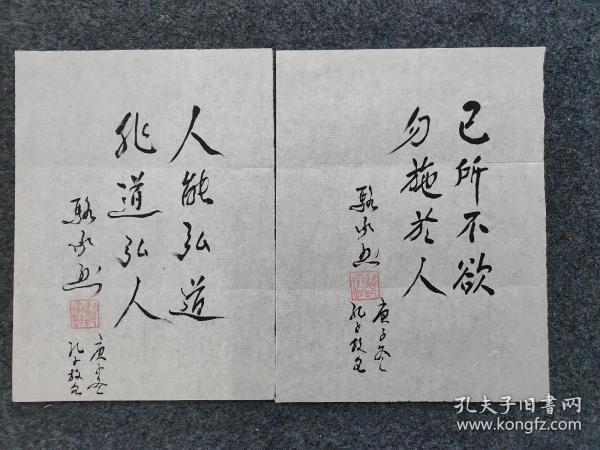 己所不欲
勿施於人
骆承烈
庚子冬
孔子故里
人能弘道
非道弘人
骆承烈
庚子冬
孔子故里
孔夫子旧书网
www.kongfz.com